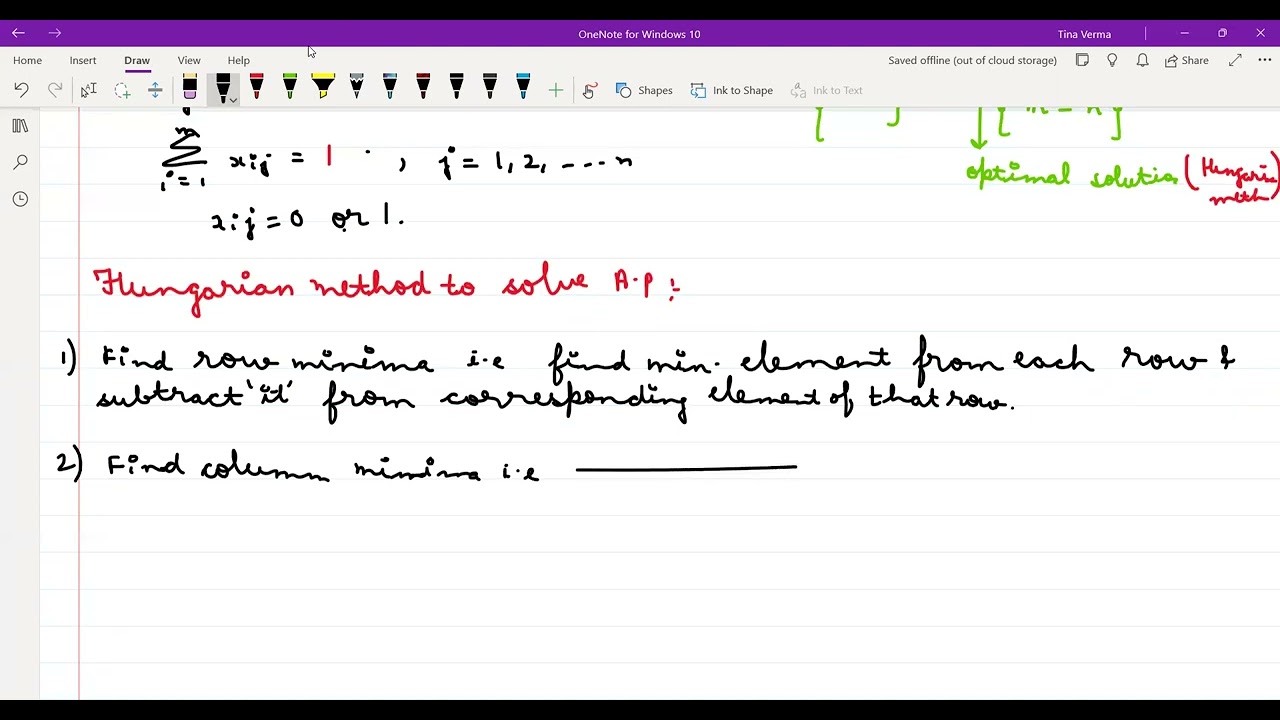 OneNote for Windows 10
Tina Verma
Home Insert Draw View Help
Saved offline (out of cloud storage)
Share
Shapes
Ink to Shape
Ink to Text
n
∑ xij = 1 , j = 1, 2, ---- n
i=1
xij = 0 or 1.
optimal solutio (Hungari
meth)
Hungarian method to solve A.P :-
1) Find row minima i.e find min. element from each row &
subtract 'it' from corresponding element of that row.
2) Find column minima i.e